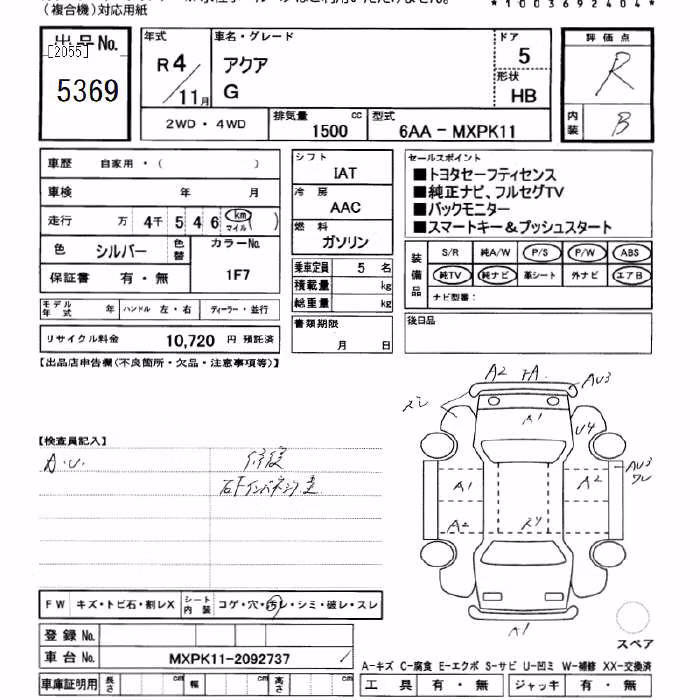 (複合機)対応用紙
*1003692404*
出品No.
[2055]
5369
年式
R4/11月
車名・グレード
アクア
G
ドア
5
形状
HB
評価点
R
内装
B
2WD・4WD
排気量
1500 cc
型式
6AA－MXPK11
車歴 自家用・( )
車検 年 月
走行 万 4千 5 4 6 km マイル ( )
色 シルバー 色替 カラーNo. 1F7
保証書 有・無
モデル年式 年 ハンドル 左・右 ディーラー・並行
リサイクル料金 10,720 円 預託済
シフト
IAT
冷房
AAC
燃料
ガソリン
乗車定員 5 名
積載量 kg
総重量 kg
書類期限
月 日
セールスポイント
■トヨタセーフティセンス
■純正ナビ、フルセグTV
■バックモニター
■スマートキー＆プッシュスタート
装備品
S/R 純A/W P/S P/W ABS
純TV 純ナビ 革シート 外ナビ エアB
ナビ型番：
後日品
【出品店申告欄(不良箇所・欠品・注意事項等)】
【検査員記入】
A.U.
修復
A2
AU3
ズレ
A1
U4
A1
A2
AU3
ワレ
A2
A1
FW キズ・トビ石・割レX シート内装 コゲ・穴・汚レ・シミ・破レ・スレ
登録No.
車台No. MXPK11-2092737
車庫証明用 長さ cm 幅 cm 高さ cm
スペア
A-キズ C-腐食 E-エクボ S-サビ U-凹ミ W-補修 XX-交換済
工具 有・無 ジャッキ 有・無